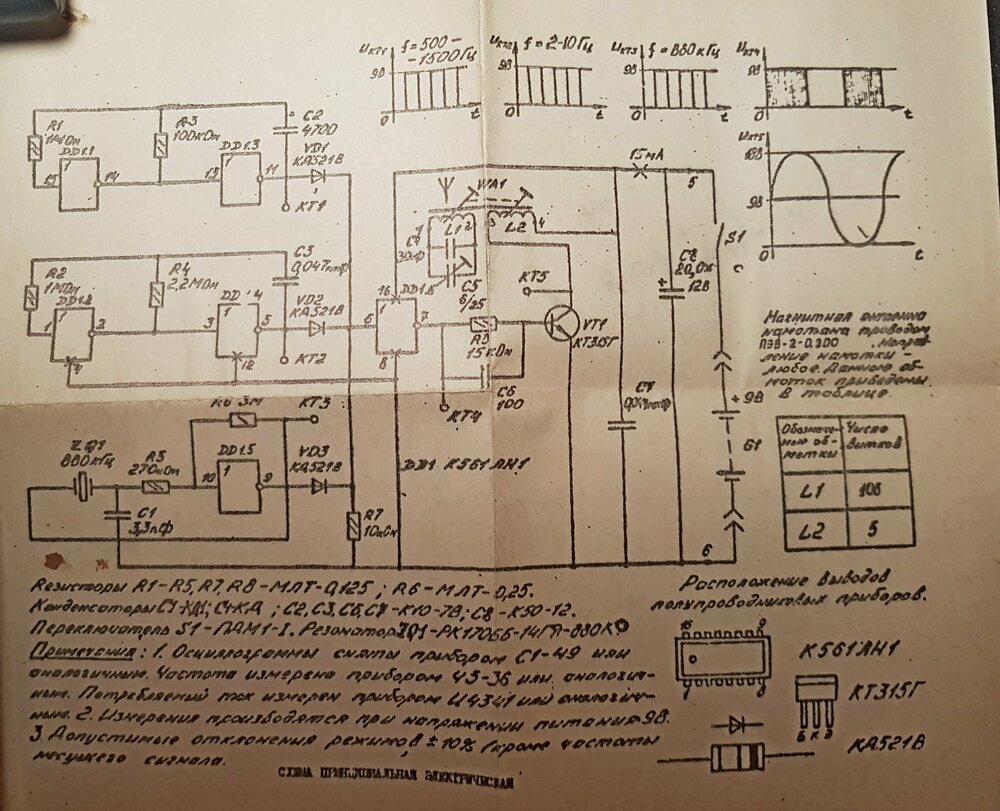 Uкт1 f=500-
-1500Гц
9В
0
t
Uкт2 f=2-10Гц
9В
0
t
Uкт3 f=880кГц
9В
0
t
Uкт4
9В
0
t
Uкт5
18В
9В
0
t
R1
1МОм
DD1.1
1
15
14
R3
100кОм
13
DD1.3
1
11
C2
4700
VD1
КД521В
КТ1
R2
1МОм
DD1.2
1
2
R4
2,2МОм
3
1
5
12
C3
VD2
КД521В
КТ2
R6 3М
КТ3
ZQ1
880кГц
R5
270кОм
10
DD1.5
1
9
VD3
КД521В
C1
3,3пФ
R7
10кОм
16
6
7
8
DD1.6
WA1
1
L1
2
3
L2
4
C5
6/25
R8
15кОм
C6
100
КТ4
КТ5
VT1
КТ315Г
DD1 К561ЛН1
15мА
5
S1
C8
20,0х
12В
+
+ 9В
G1
6
Магнитная антенна
намотана проводом
ПЭВ-2-0,200 . Направ-
ление намотки -
любое. Данные об-
моток приведены
в таблице.
Обозначе-
ние об-
мотки
Число
витков
L1
L2 5
Резисторы R1-R5, R7, R8-МЛТ-0,125 ; R6-МЛТ-0,25.
Конденсаторы ; C2, C3, C6, C7-К10-7В; C8-К50-12.
Переключатель S1-ПДМ1-I. Резонатор ZQ1-РК170ББ-14ГП-880К
Примечания: 1. Осциллограммы сняты прибором С1-49 или
аналогичным. Частота измерена прибором Ч3-36 или аналогич-
ным. Потребляемый ток измерен прибором Ц4341 или аналогич-
ным. 2. Измерения производятся при напряжении питания 9В.
3. Допустимые отклонения режимов ±10% (кроме частоты
несущего сигнала.
СХЕМА ПРИНЦИПИАЛЬНАЯ ЭЛЕКТРИЧЕСКАЯ
Расположение выводов
полупроводниковых приборов.
16
9
1
8
К561ЛН1
КТ315Г
Б К Э
КД521В